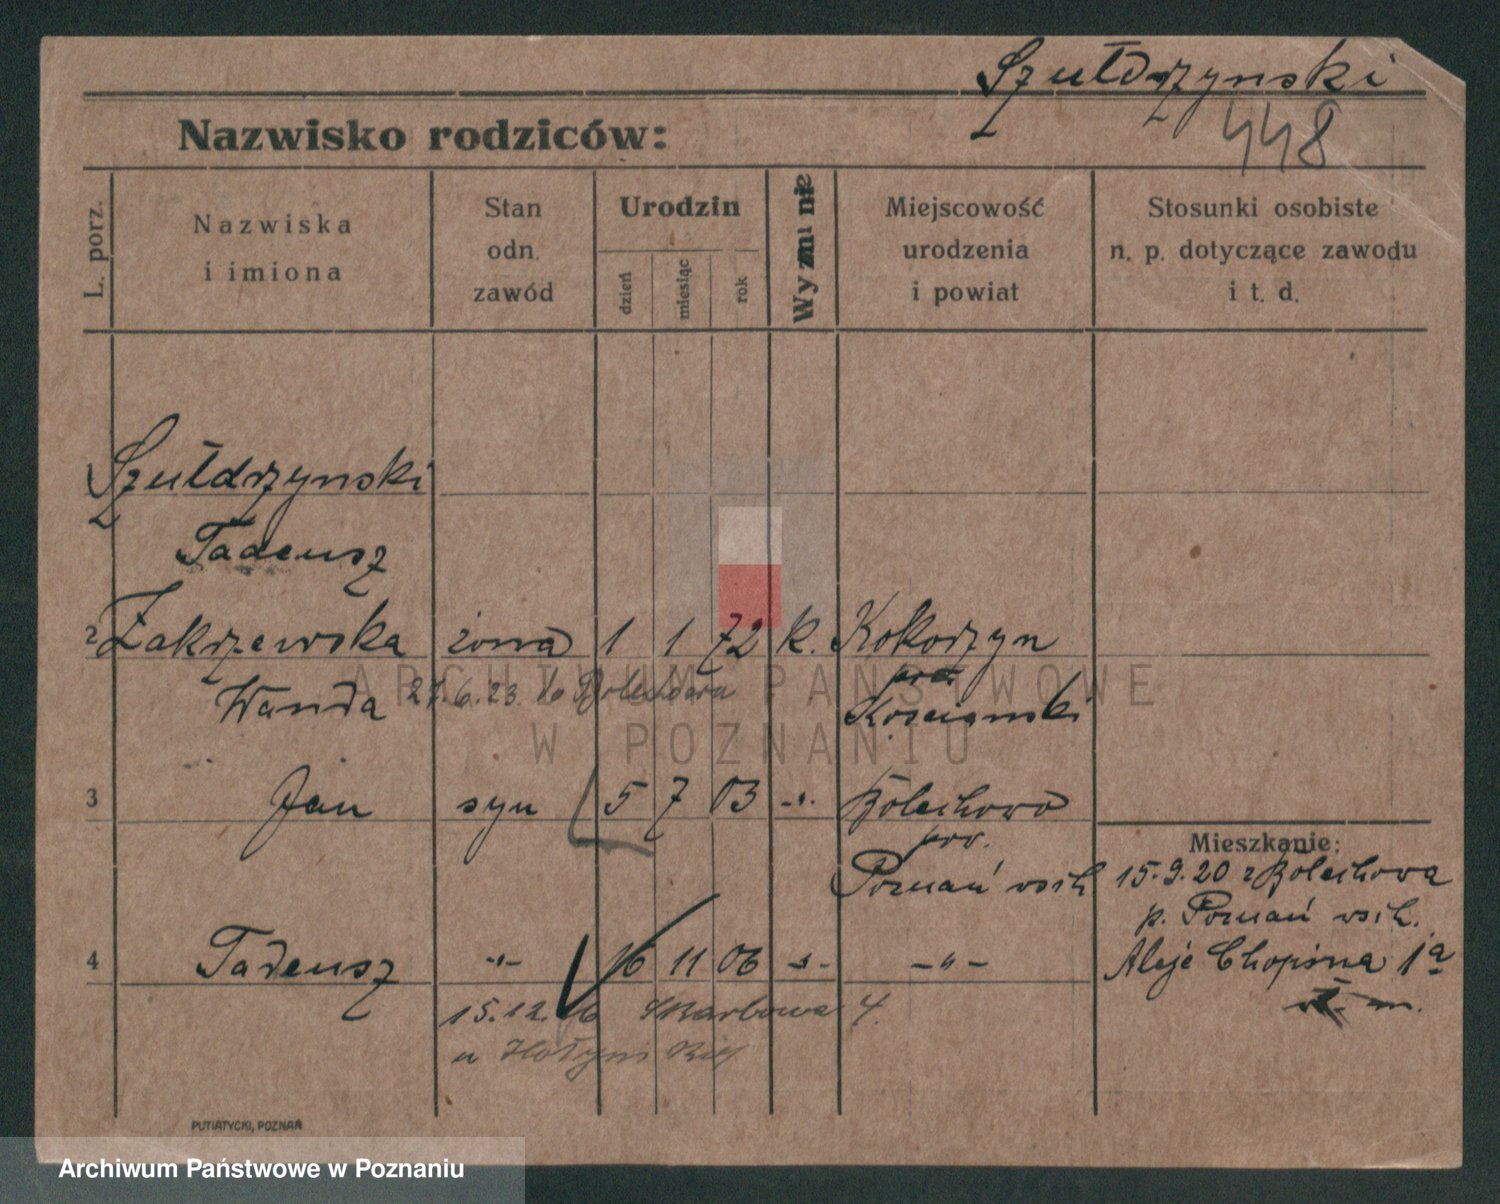 Szułdrzynski
Nazwisko rodziców:
448
L. porz.
Nazwiska
i imiona
Stan
odn.
zawód
Urodzin
dzień
miesiąc
rok
Wyznanie
Miejscowość
urodzenia
i powiat
Stosunki osobiste
n. p. dotyczące zawodu
i t. d.
Szułdrzynski
Tadeusz
2 Zakrzewska żona 1 1 72 k. Kokorzyn
Wanda 27.6.23. do Bolechowa
Kościański
3 Jan syn 5 7 03 -"- Bolechowo
pow.
Poznań wsch
Mieszkanie:
15.9.20 z Bolechowa
p. Poznań wsch.
4 Tadeusz -"- 16 11 06 -"- -"-
Aleje Chopina 1a
m.
15.12. Skarbowa 4.
u
PUTIATYCKI, POZNAŃ
ARCHIWUM PAŃSTWOWE
W POZNANIU
Archiwum Państwowe w Poznaniu